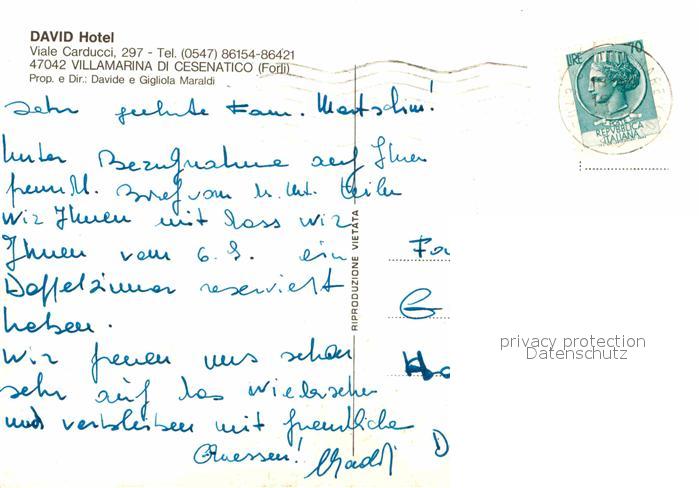 DAVID Hotel
Viale Carducci, 297 - Tel. (0547) 86154-86421
47042 VILLAMARINA DI CESENATICO (Forlì)
Prop. e Dir.: Davide e Gigliola Maraldi
LIRE 70
POSTE
REPVBBLICA
ITALIANA
Sehr geehrte Fam.
Unter Bezugnahme auf Ihren
freundl. Brief vom
wir Ihnen mit dass wir
Ihnen vom 6. 9. ein
Doppelzimmer reserviert
haben.
Wir freuen uns schon
sehr auf das Wiedersehen
und verbleiben mit freundliche
Gruessen! Maraldi
RIPRODUZIONE VIETATA
Fa
G
Ha
D
privacy protection
Datenschutz